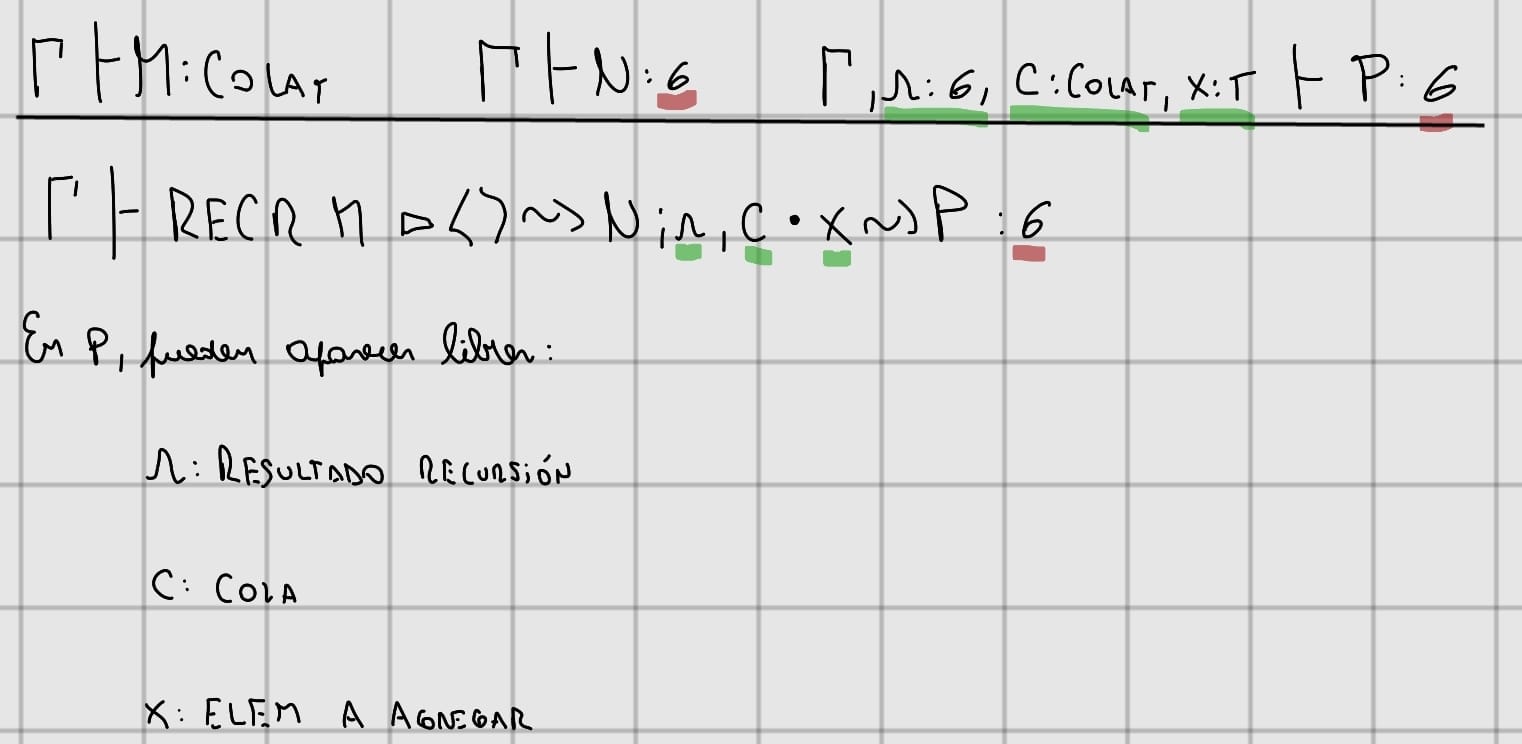 Γ ⊢ M : COLA_T Γ ⊢ N : σ Γ, r : σ, C : COLA_T, X : T ⊢ P : σ
Γ ⊢ RECR M ▷ ⟨⟩ ⇝ N ; r, C • X ⇝ P : σ
En P, pueden aparecer libres:
r: RESULTADO RECURSIÓN
C: COLA
X: ELEM A AGREGAR